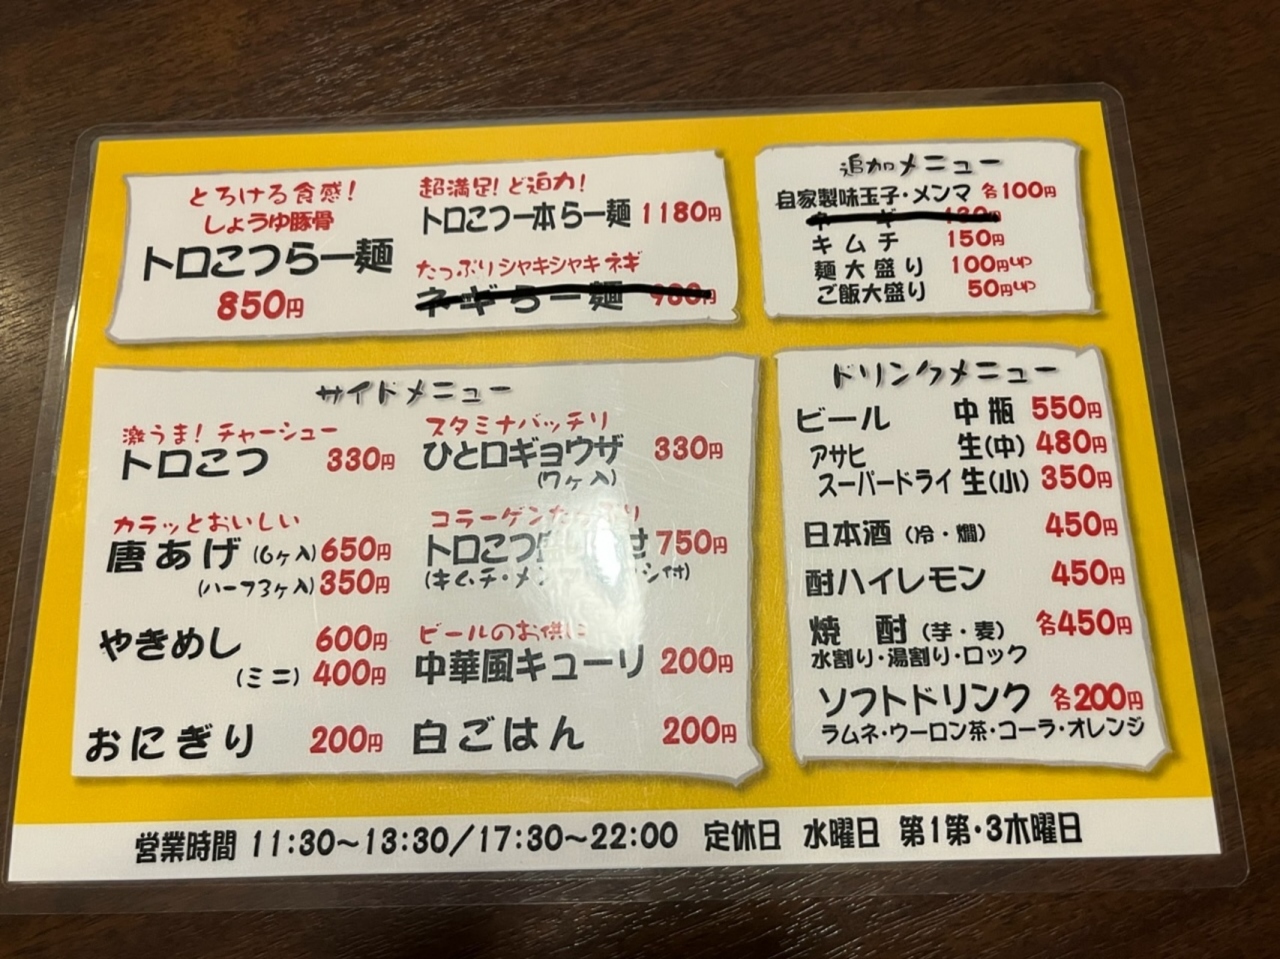 とろける食感!
しょうゆ豚骨
トロこつらー麺
850円
超満足!ど迫力!
トロこつ一本らー麺 1180円
たっぷりシャキシャキネギ
ネギらー麺
追加メニュー
自家製味玉子・メンマ 各100円
ネギ
キムチ 150円
麺大盛り 100円up
ご飯大盛り 50円up
サイドメニュー
激うま!チャーシュー
トロこつ 330円
カラッとおいしい
唐あげ (6ヶ入) 650円
(ハーフ3ヶ入) 350円
やきめし 600円
(ミニ) 400円
おにぎり 200円
スタミナバッチリ
ひと口ギョウザ 330円
(7ヶ入)
コラーゲン
トロこつ 750円
(キムチ・
ビールのお供に
中華風キューリ 200円
白ごはん 200円
ドリンクメニュー
ビール 中瓶 550円
アサヒ 生(中) 480円
スーパードライ 生(小) 350円
日本酒 (冷・燗) 450円
酎ハイレモン 450円
焼酎 (芋・麦) 各450円
水割り・湯割り・ロック
ソフトドリンク 各200円
ラムネ・ウーロン茶・コーラ・オレンジ
営業時間 11:30〜13:30/17:30〜22:00 定休日 水曜日 第1第・3木曜日